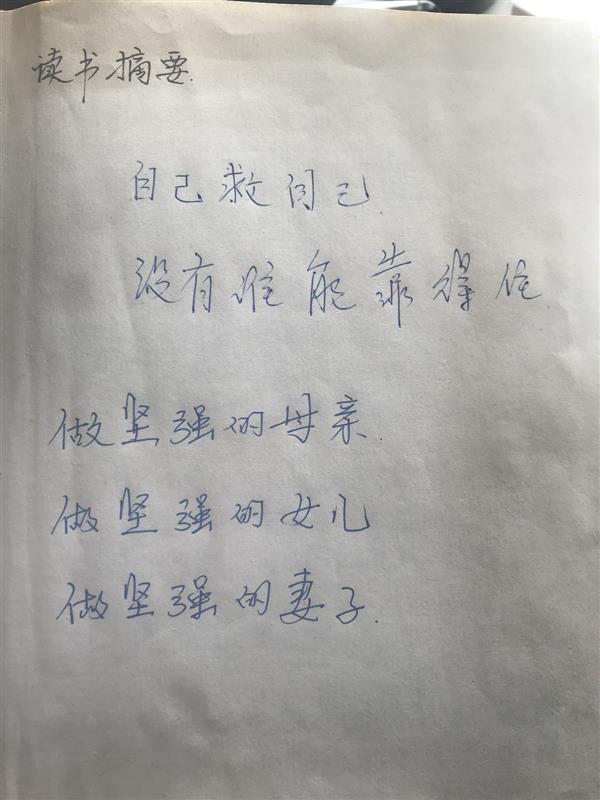 读书摘要.
自己救自己.
没有谁能靠得住.
做坚强的母亲.
做坚强的女儿
做坚强的妻子.